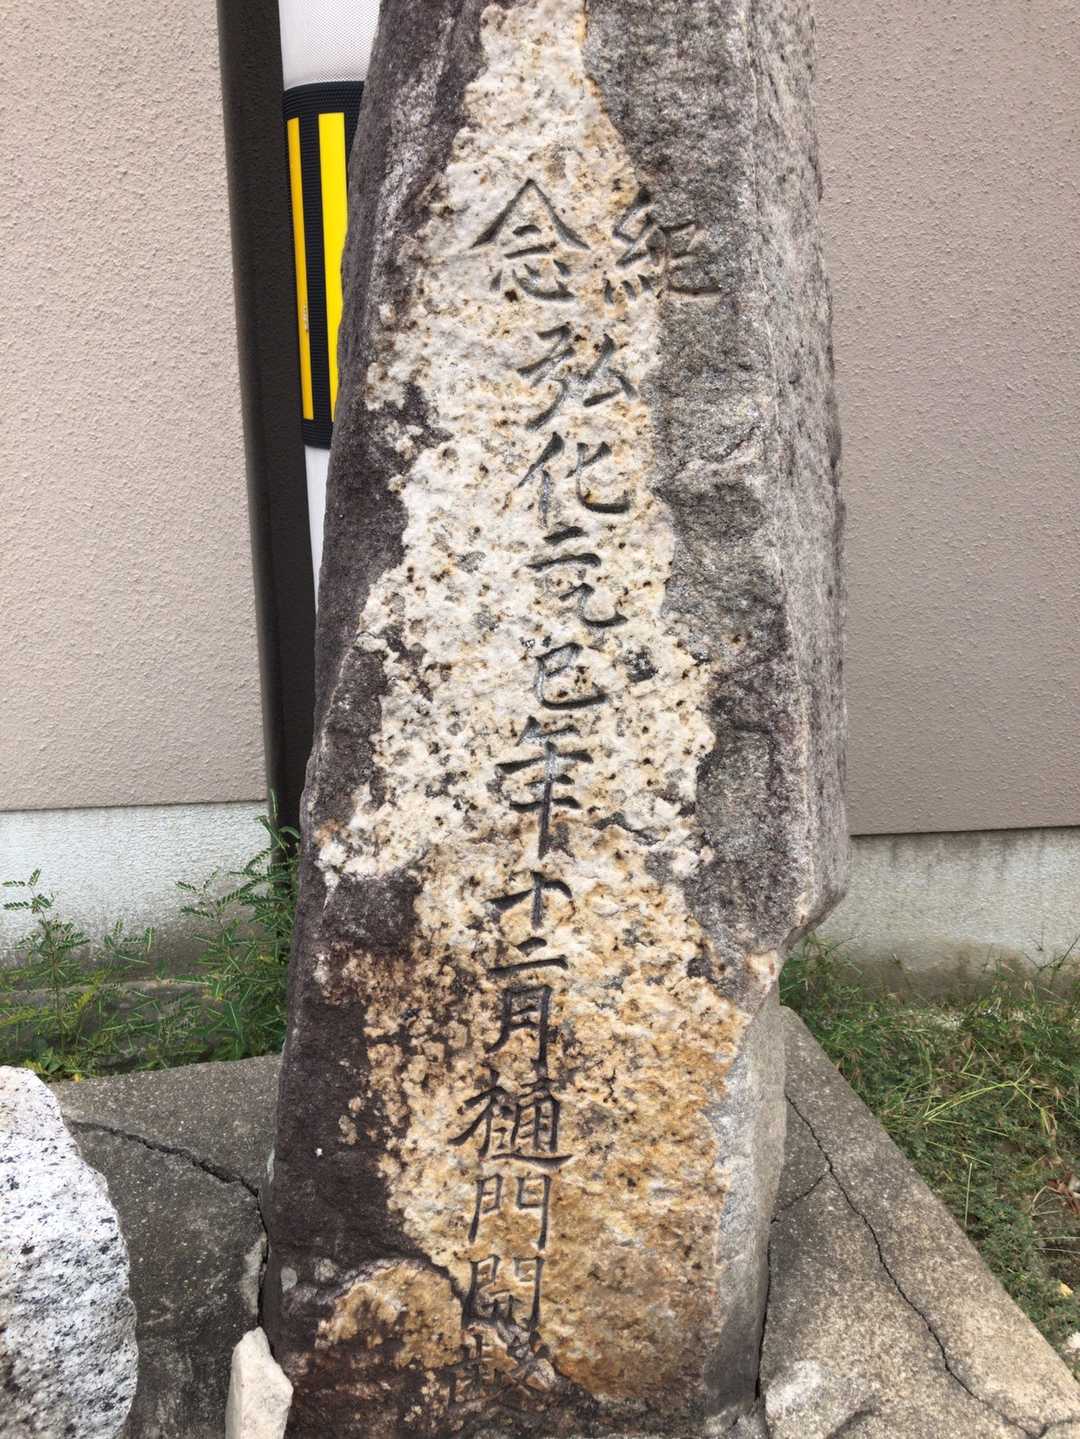 紀念
弘化二乙巳年十二月樋門開設